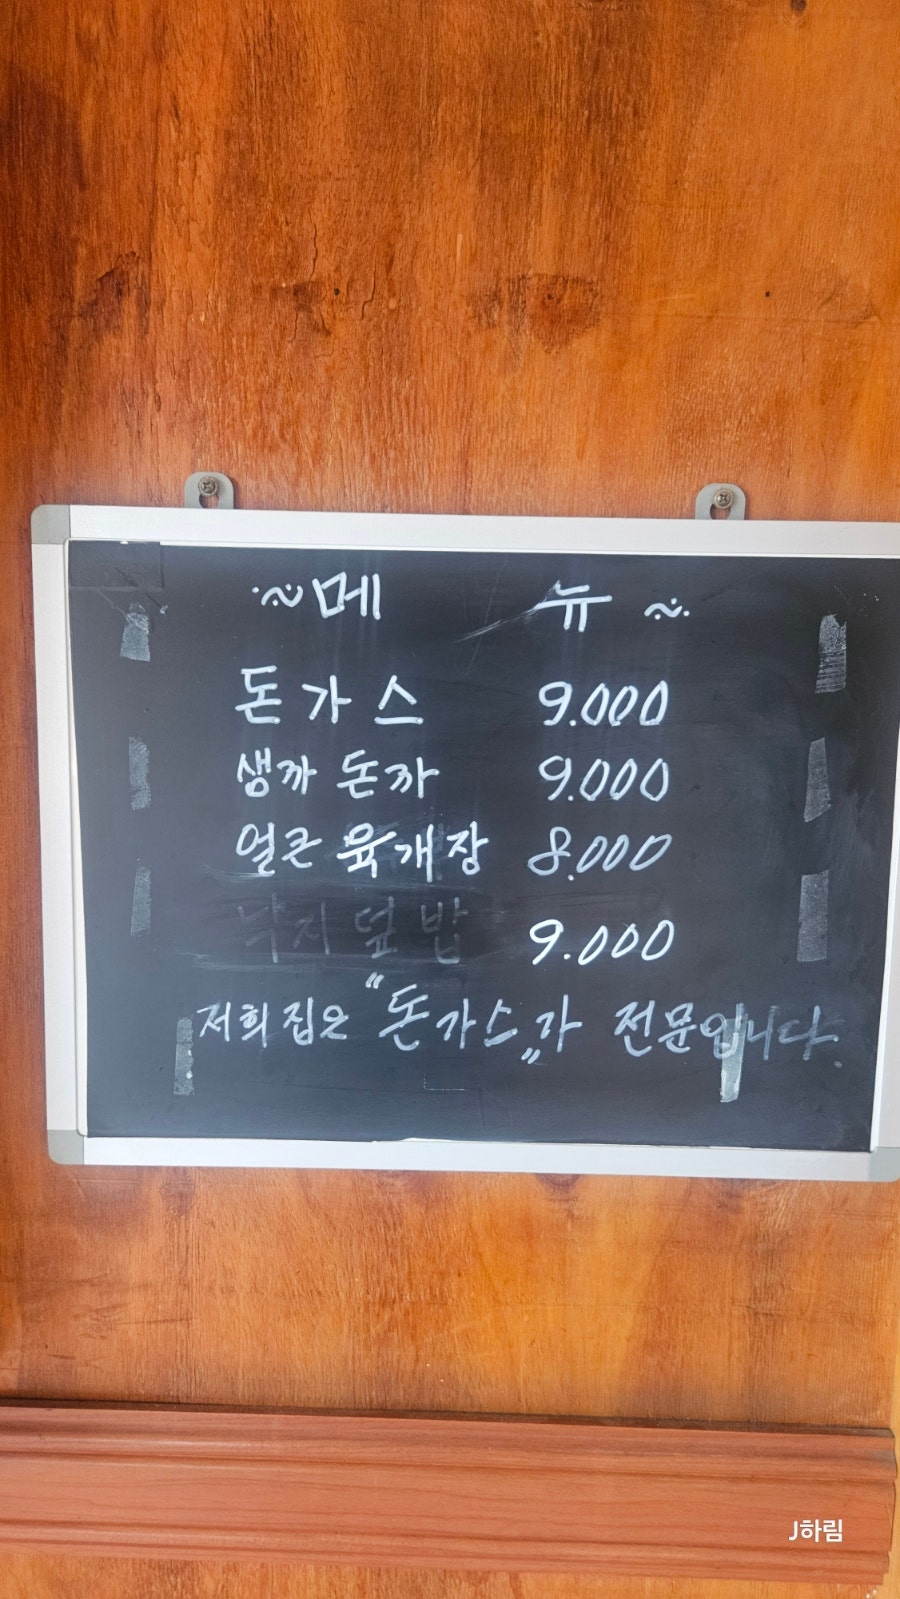 ~메 뉴~
돈가스 9.000
생까 돈까 9.000
얼큰 육개장 8.000
낙지덮밥 9.000
저희 집은 "돈가스"가 전문입니다.
J하림